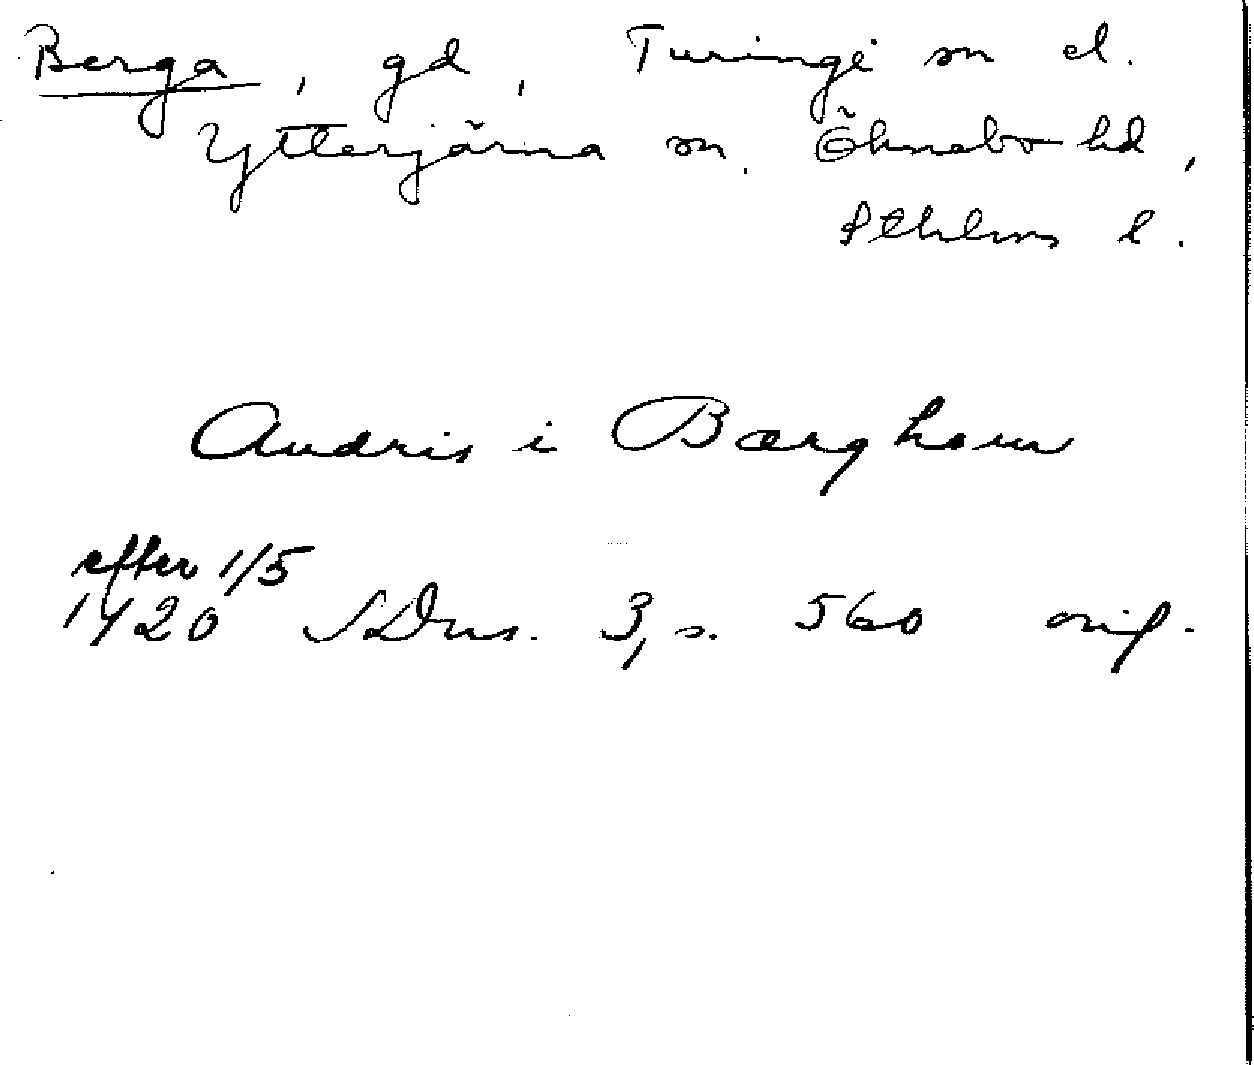 Berga, gd, Turinge sn el.
Ytterjärna sn. Öknebo hd,
Sthlms l.
Andris i Bærghom
efter 1/5
1420 SDns. 3, s. 560 orig.